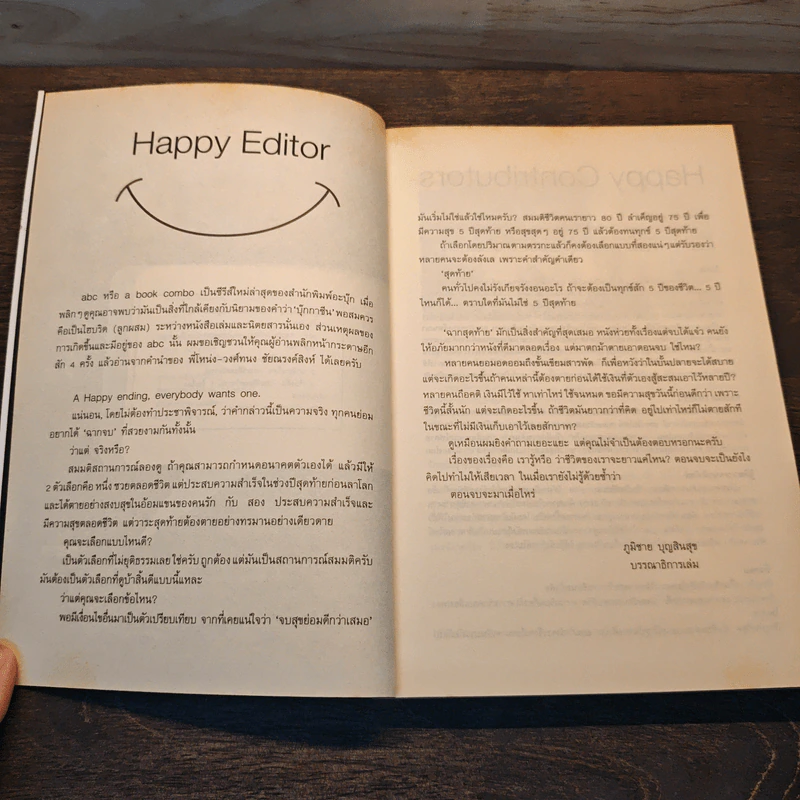 Happy Editor
abc หรือ a book combo เป็นซีรีส์ใหม่ล่าสุดของสำนักพิมพ์อะบุ๊ก เมื่อ
พลิกๆดูคุณอาจพบว่ามันเป็นสิ่งที่ใกล้เคียงกับนิยามของคำว่า 'บุ๊กกาซีน' พอสมควร
คือเป็นไฮบริด (ลูกผสม) ระหว่างหนังสือเล่มและนิตยสารนั่นเอง ส่วนเหตุผลของ
การเกิดขึ้นและมีอยู่ของ abc นั้น ผมขอเชิญชวนให้คุณผู้อ่านพลิกหน้ากระดาษอีก
สัก 4 ครั้ง แล้วอ่านจากคำนำของ พี่โหน่ง-วงศ์ทนง ชัยณรงค์สิงห์ ได้เลยครับ
A Happy ending, everybody wants one.
แน่นอน, โดยไม่ต้องทำประชาพิจารณ์, ว่าคำกล่าวนี้เป็นความจริง ทุกคนย่อม
อยากได้ 'ฉากจบ' ที่สวยงามกันทั้งนั้น
ว่าแต่ จริงหรือ?
สมมติสถานการณ์ลองดู ถ้าคุณสามารถกำหนดอนาคตตัวเองได้ แล้วมีให้
2 ตัวเลือกคือ หนึ่ง ซวยตลอดชีวิต แต่ประสบความสำเร็จในช่วงปีสุดท้ายก่อนลาโลก
และได้ตายอย่างสงบสุขในอ้อมแขนของคนรัก กับ สอง ประสบความสำเร็จและ
มีความสุขตลอดชีวิต แต่วาระสุดท้ายต้องตายอย่างทรมานอย่างเดียวดาย
คุณจะเลือกแบบไหนดี?
เป็นตัวเลือกที่ไม่ยุติธรรมเลย ใช่ครับ ถูกต้อง แต่มันเป็นสถานการณ์สมมติครับ
มันต้องเป็นตัวเลือกที่ดูบ้าสิ้นดีแบบนี้แหละ
ว่าแต่คุณจะเลือกข้อไหน?
พอมีเงื่อนไขอื่นมาเป็นตัวเปรียบเทียบ จากที่เคยแน่ใจว่า 'จบสุขย่อมดีกว่าเสมอ'
มันเริ่มไม่ใช่แล้วใช่ไหมครับ? สมมติชีวิตคนเรายาว 80 ปี ลำเค็ญอยู่ 75 ปี เพื่อ
มีความสุข 5 ปีสุดท้าย หรือสุขสุดๆ อยู่ 75 ปี แล้วต้องทนทุกข์ 5 ปีสุดท้าย
ถ้าเลือกโดยปริมาณตามตรรกะแล้วก็คงต้องเลือกแบบที่สองแน่ๆแต่รับรองว่า
หลายคนจะต้องลังเล เพราะคำสำคัญคำเดียว
'สุดท้าย'
คนทั่วไปคงไม่รังเกียจรังงอนอะไร ถ้าจะต้องเป็นทุกข์สัก 5 ปีของชีวิต... 5 ปี
ไหนก็ได้... ตราบใดที่มันไม่ใช่ 5 ปีสุดท้าย
'ฉากสุดท้าย' มักเป็นสิ่งสำคัญที่สุดเสมอ หนังห่วยทั้งเรื่องแต่จบได้แจ๋ว คนยัง
ให้อภัยมากกว่าหนังที่ดีมาตลอดเรื่อง แต่มาตกม้าตายเอาตอนจบ ใช่ไหม?
หลายคนยอมอดออมถึงขั้นเขียมสารพัด ก็เพื่อหวังว่าในบั้นปลายจะได้สบาย
แต่จะเกิดอะไรขึ้นถ้าคนเหล่านี้ต้องตายก่อนได้ใช้เงินที่ตัวเองสู้สะสมเอาไว้หลายปี?
หลายคนถือคติ เงินมีไว้ใช้ หาเท่าไหร่ ใช้จนหมด ขอมีความสุขวันนี้ก่อนดีกว่า เพราะ
ชีวิตนี้สั้นนัก แต่จะเกิดอะไรขึ้น ถ้าชีวิตมันยาวกว่าที่คิด อยู่ไปเท่าไหร่ก็ไม่ตายสักที
ในขณะที่ไม่มีเงินเก็บเอาไว้เลยสักบาท?
ดูเหมือนผมยิงคำถามเยอะแยะ แต่คุณไม่จำเป็นต้องตอบหรอกนะครับ
เรื่องของเรื่องคือ เรารู้หรือ ว่าชีวิตของเราจะยาวแค่ไหน? ตอนจบจะเป็นยังไง
คิดไปทำไมให้เสียเวลา ในเมื่อเรายังไม่รู้ด้วยซ้ำว่า
ตอนจบจะมาเมื่อไหร่
ภูมิชาย บุญสินสุข
บรรณาธิการเล่ม